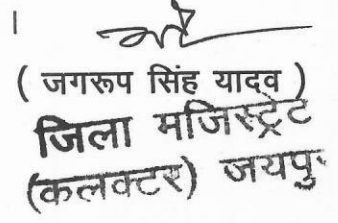 ( जगरूप सिंह यादव )
जिला मजिस्ट्रेट
(कलक्टर) जयपु